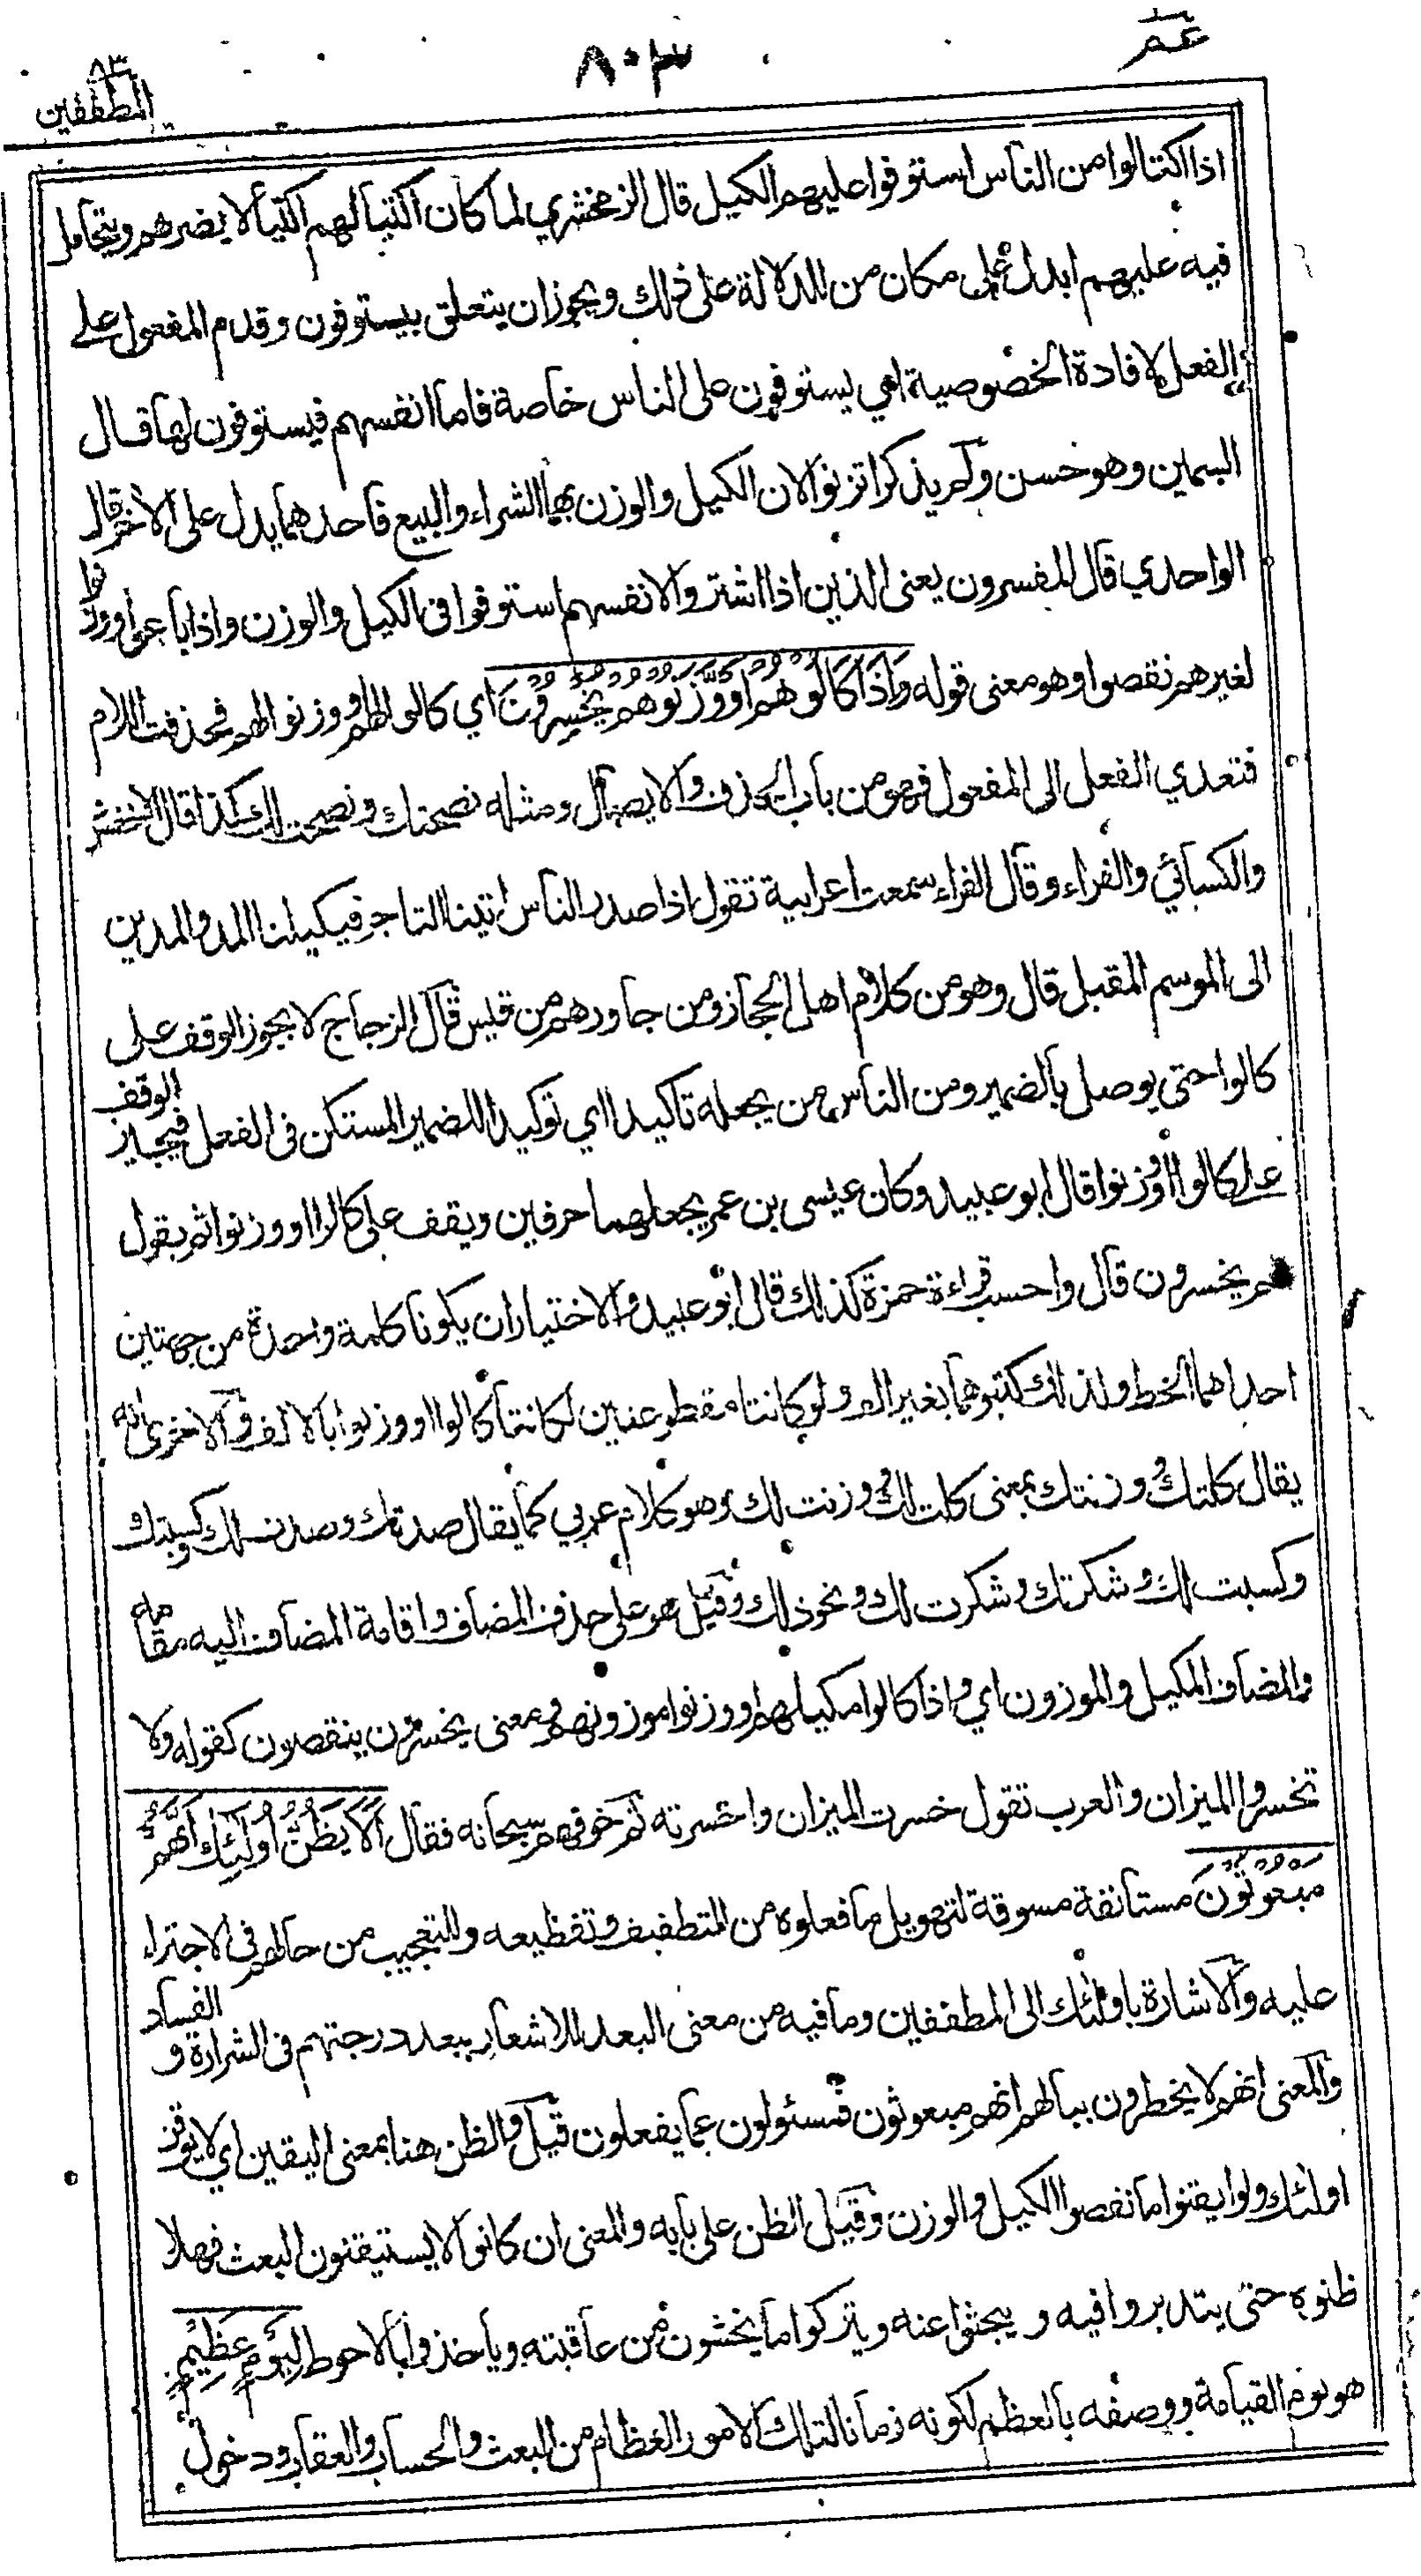 عم
٨٠٣
٨٣
المطففين
اذا اكتالوا من الناس استوفوا عليهم الكيل قال الزمخشري لما كان اكتيالهم اكتيالا يضرهم ويتحامل
فيه عليهم ابدل على مكان من للدلالة على ذلك ويجوز ان يتعلق بيستوفون وقدم المفعول على
الفعل لافادة الخصوصية اي يستوفون على الناس خاصة فاما انفسهم فيستوفون لها قال
السمين وهو حسن ولم يذكر اتزنوا لان الكيل والوزن بهما الشراء والبيع فاحدهما يدل على الاخر قال
الواحدي قال المفسرون يعني الذين اذا اشتروا لانفسهم استوفوا في الكيل والوزن واذا باعوا ووزنوا
لغيرهم نقصوا وهو معنى قوله وَاِذَا كَالُوْهُمْ اَوْ وَّزَنُوْهُمْ يُخْسِرُوْنَ اي كالوا لهم او وزنوا لهم فحذفت اللام
فتعدي الفعل الى المفعول فهو من باب الحذف والايصال ومثله نصحتك ونصحت لك كذا قال الاخفش
والكسائي والفراء وقال الفراء سمعت اعرابية تقول اذا صدر الناس اتينا التاجر فيكيلنا المد والمدين
الى الموسم المقبل قال وهو من كلام اهل الحجاز ومن جاورهم من قيس قال الزجاج لا يجوز الوقف على
كالوا حتى يوصل بالضمير ومن الناس من يجعله تاكيدا اي توكيدا للضمير المستكن في الفعل فيجيز الوقف
على كالوا او وزنوا قال ابو عبيد وكان عيسى بن عمر يجعلهما حرفين ويقف على كالوا او وزنوا ثم يقول
هم يخسرون قال واحسب قراءة حمزة كذلك قال ابو عبيد والاختيار ان يكونا كلمة واحدة من جهتين
احداهما الخط ولذلك كتبوهما بغير الف ولو كانتا مقطوعتين لكانتا كالوا او وزنوا بالالف والاخرى انه
يقال كلتك ووزنتك بمعنى كلت لك ووزنت لك وهو كلام عربي كما يقال صدتك وصدت لك وكسبتك
وكسبت لك وشكرتك وشكرت لك ونحو ذلك وقيل هو على حذف المضاف واقامة المضاف اليه مقامه
والمضاف المكيل والموزون اي واذا كالوا مكيلهم او وزنوا موزونهم ومعنى يخسرون ينقصون كقوله ولا
تخسروا الميزان والعرب تقول خسرت الميزان واخسرته ثم خوفهم سبحانه فقال اَلَا يَظُنُّ اُولٰٓئِكَ اَنَّهُمْ
مَّبْعُوْثُوْنَ مستانفة مسوقة لتهويل ما فعلوه من التطفيف وتفظيعه وللتعجيب من حالهم في الاجتراء
عليه والاشارة باولئك الى المطففين وما فيه من معنى البعد للاشعار ببعد درجتهم في الشرارة و الفساد
والمعنى انهم لا يخطرون ببالهم انهم مبعوثون فمسئولون عما يفعلون قيل والظن هنا بمعنى اليقين اي لا يوقن
اولئك ولو ايقنوا ما نقصوا الكيل والوزن وقيل الظن على بابه والمعنى ان كانوا لا يستيقنون البعث فهلا
ظنوه حتى يتدبروا فيه و يبحثوا عنه ويتركوا ما يخشون من عاقبته وياخذوا بالاحوط لِيَوْمٍ عَظِيْمٍ
هو يوم القيامة ووصفه بالعظم لكونه زمانا لتلك الامور العظام من البعث والحساب والعقاب ودخول